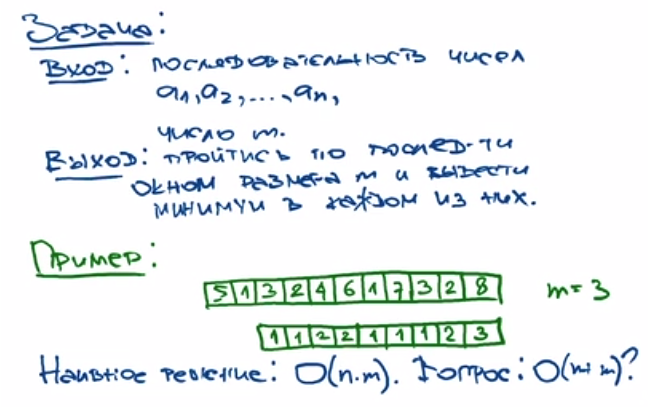 Задача:
Вход: последовательность чисел
a1, a2, ..., an,
число m.
Выход: пройтись по послед-ти
окном размера m и вывести
минимум в каждом из них.
Пример:
5 1 3 2 4 6 1 7 3 2 8 m = 3
1 1 2 2 1 1 1 2 3
Наивное решение: O(n·m). Вопрос: O(n+m)?